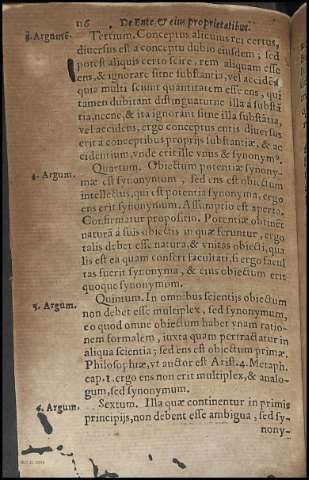 116 De Ente, & eius proprietatibus.
3. Argumē. Tertium. Conceptus alicuius rei certus,
diuersus est a conceptu dubio eiusdem; sed
potest aliquis certo scire, rem aliquam esse
ens, & ignorare sitne substantia, vel accidēs
quia multi sciunt quantitatem esse ens, qui
tamen dubitant distinguaturne illa à substā
tia, necne, & ita ignorant sitne illa substātia,
vel accidens, ergo conceptus entis diuersus
erit a conceptibus proprijs substantiæ, & ac
cidentium, vnde erit ille vnus & synonymº.
4. Argum. Quartum. Obiectum potentiæ synony-
mæ est synonymum, sed ens est obiectum
intellectus, qui est potentia synonyma, ergo
ens erit synonymum. Assumptio est aperta.
Confirmatur propositio. Potentiæ obtinēt
naturā à suis obiectis in quæ feruntur, ergo
talis debet esse natura, & vnitas obiecti, qua
lis est ea quam confert facultati, si ergo facul
tas fuerit synonyma, & eius obiectum erit
quoque synonymum.
5. Argum. Quintum. In omnibus scientijs obiectum
non debet esse multiplex, sed synonymum,
eo quod omne obiectum habet vnam ratio-
nem formalem, iuxta quam pertractatur in
aliqua scientia; sed ens est obiectum primæ
Philosophiæ, vt auctor est Arist. 4. Metaph.
cap. 1. ergo ens non erit multiplex, & analo-
gum, sed synonymum.
6. Argum. Sextum. Illa quæ continentur in primis
principijs, non debent esse ambigua, sed sy-
nony-